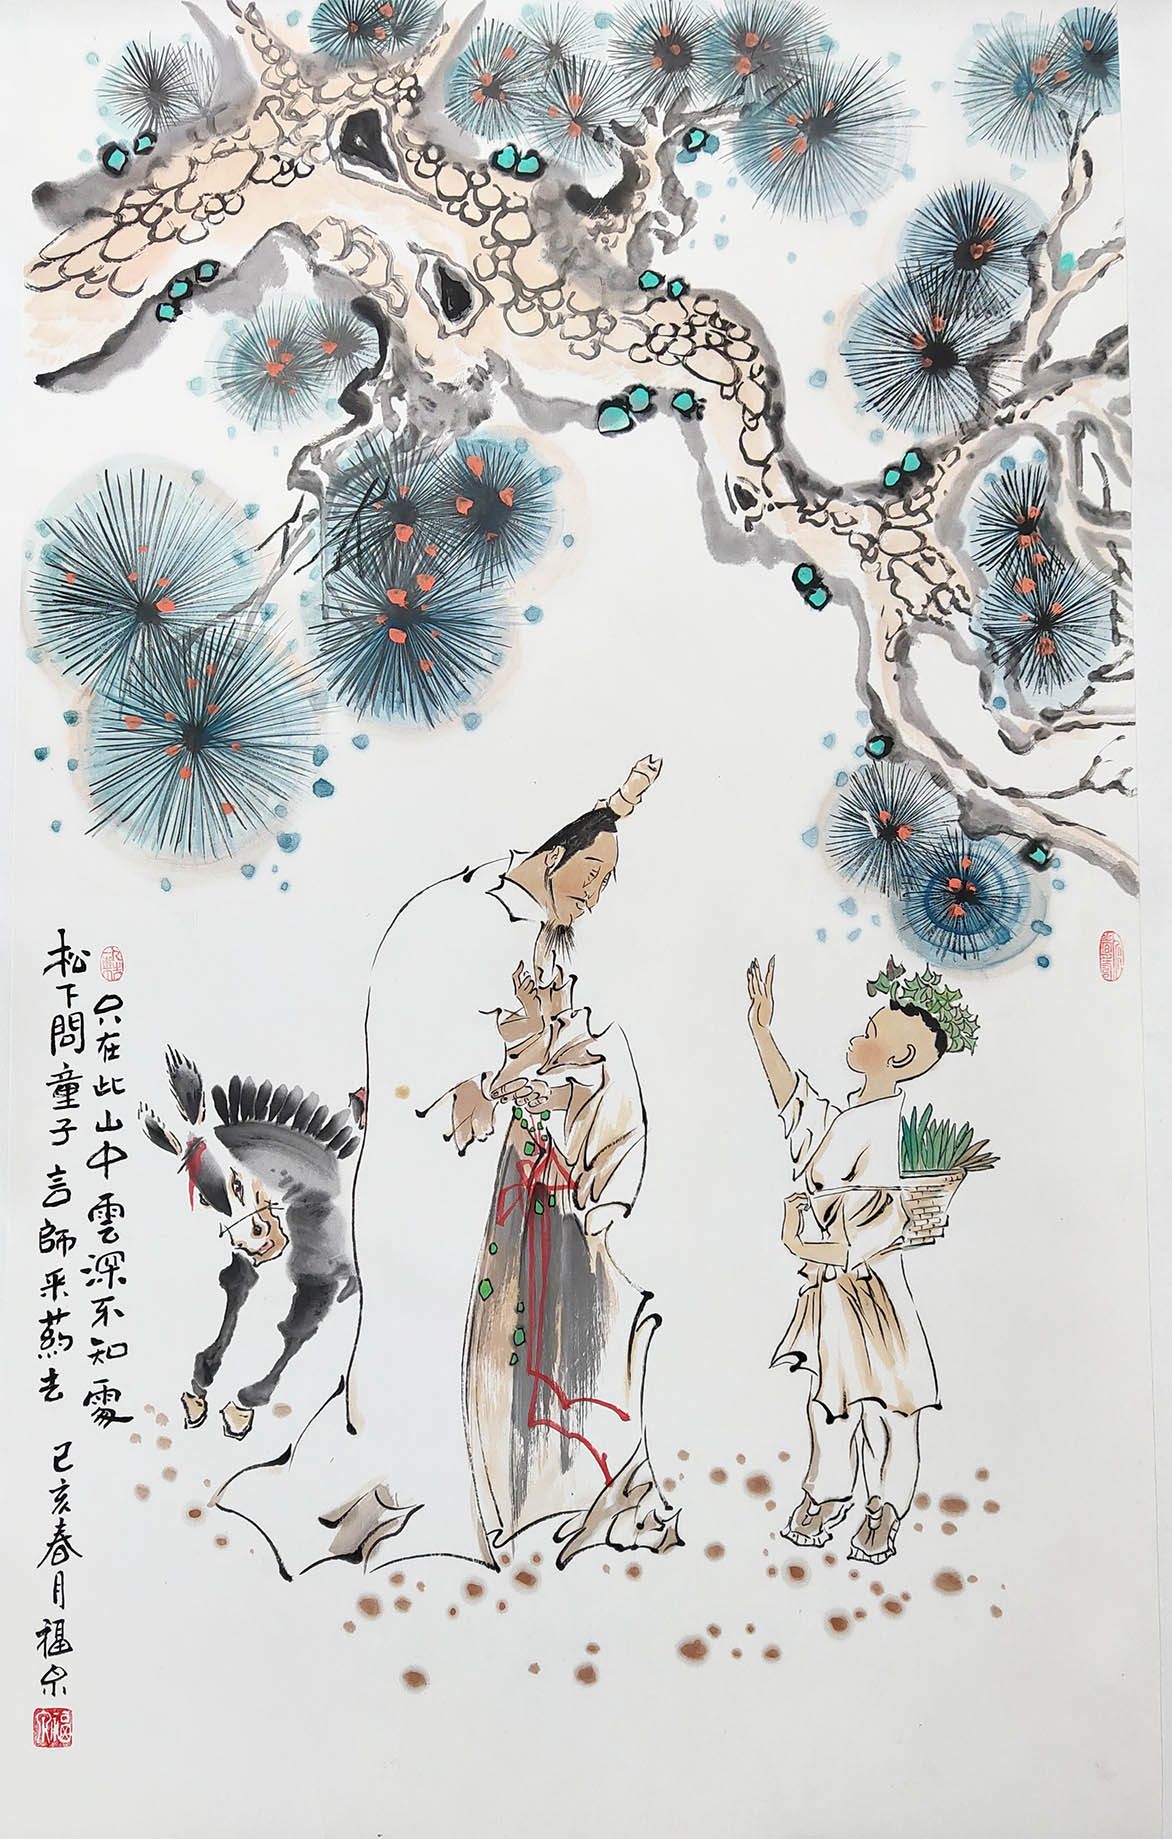 松下問童子言師采葯去
只在此山中雲深不知處
己亥春月福泉